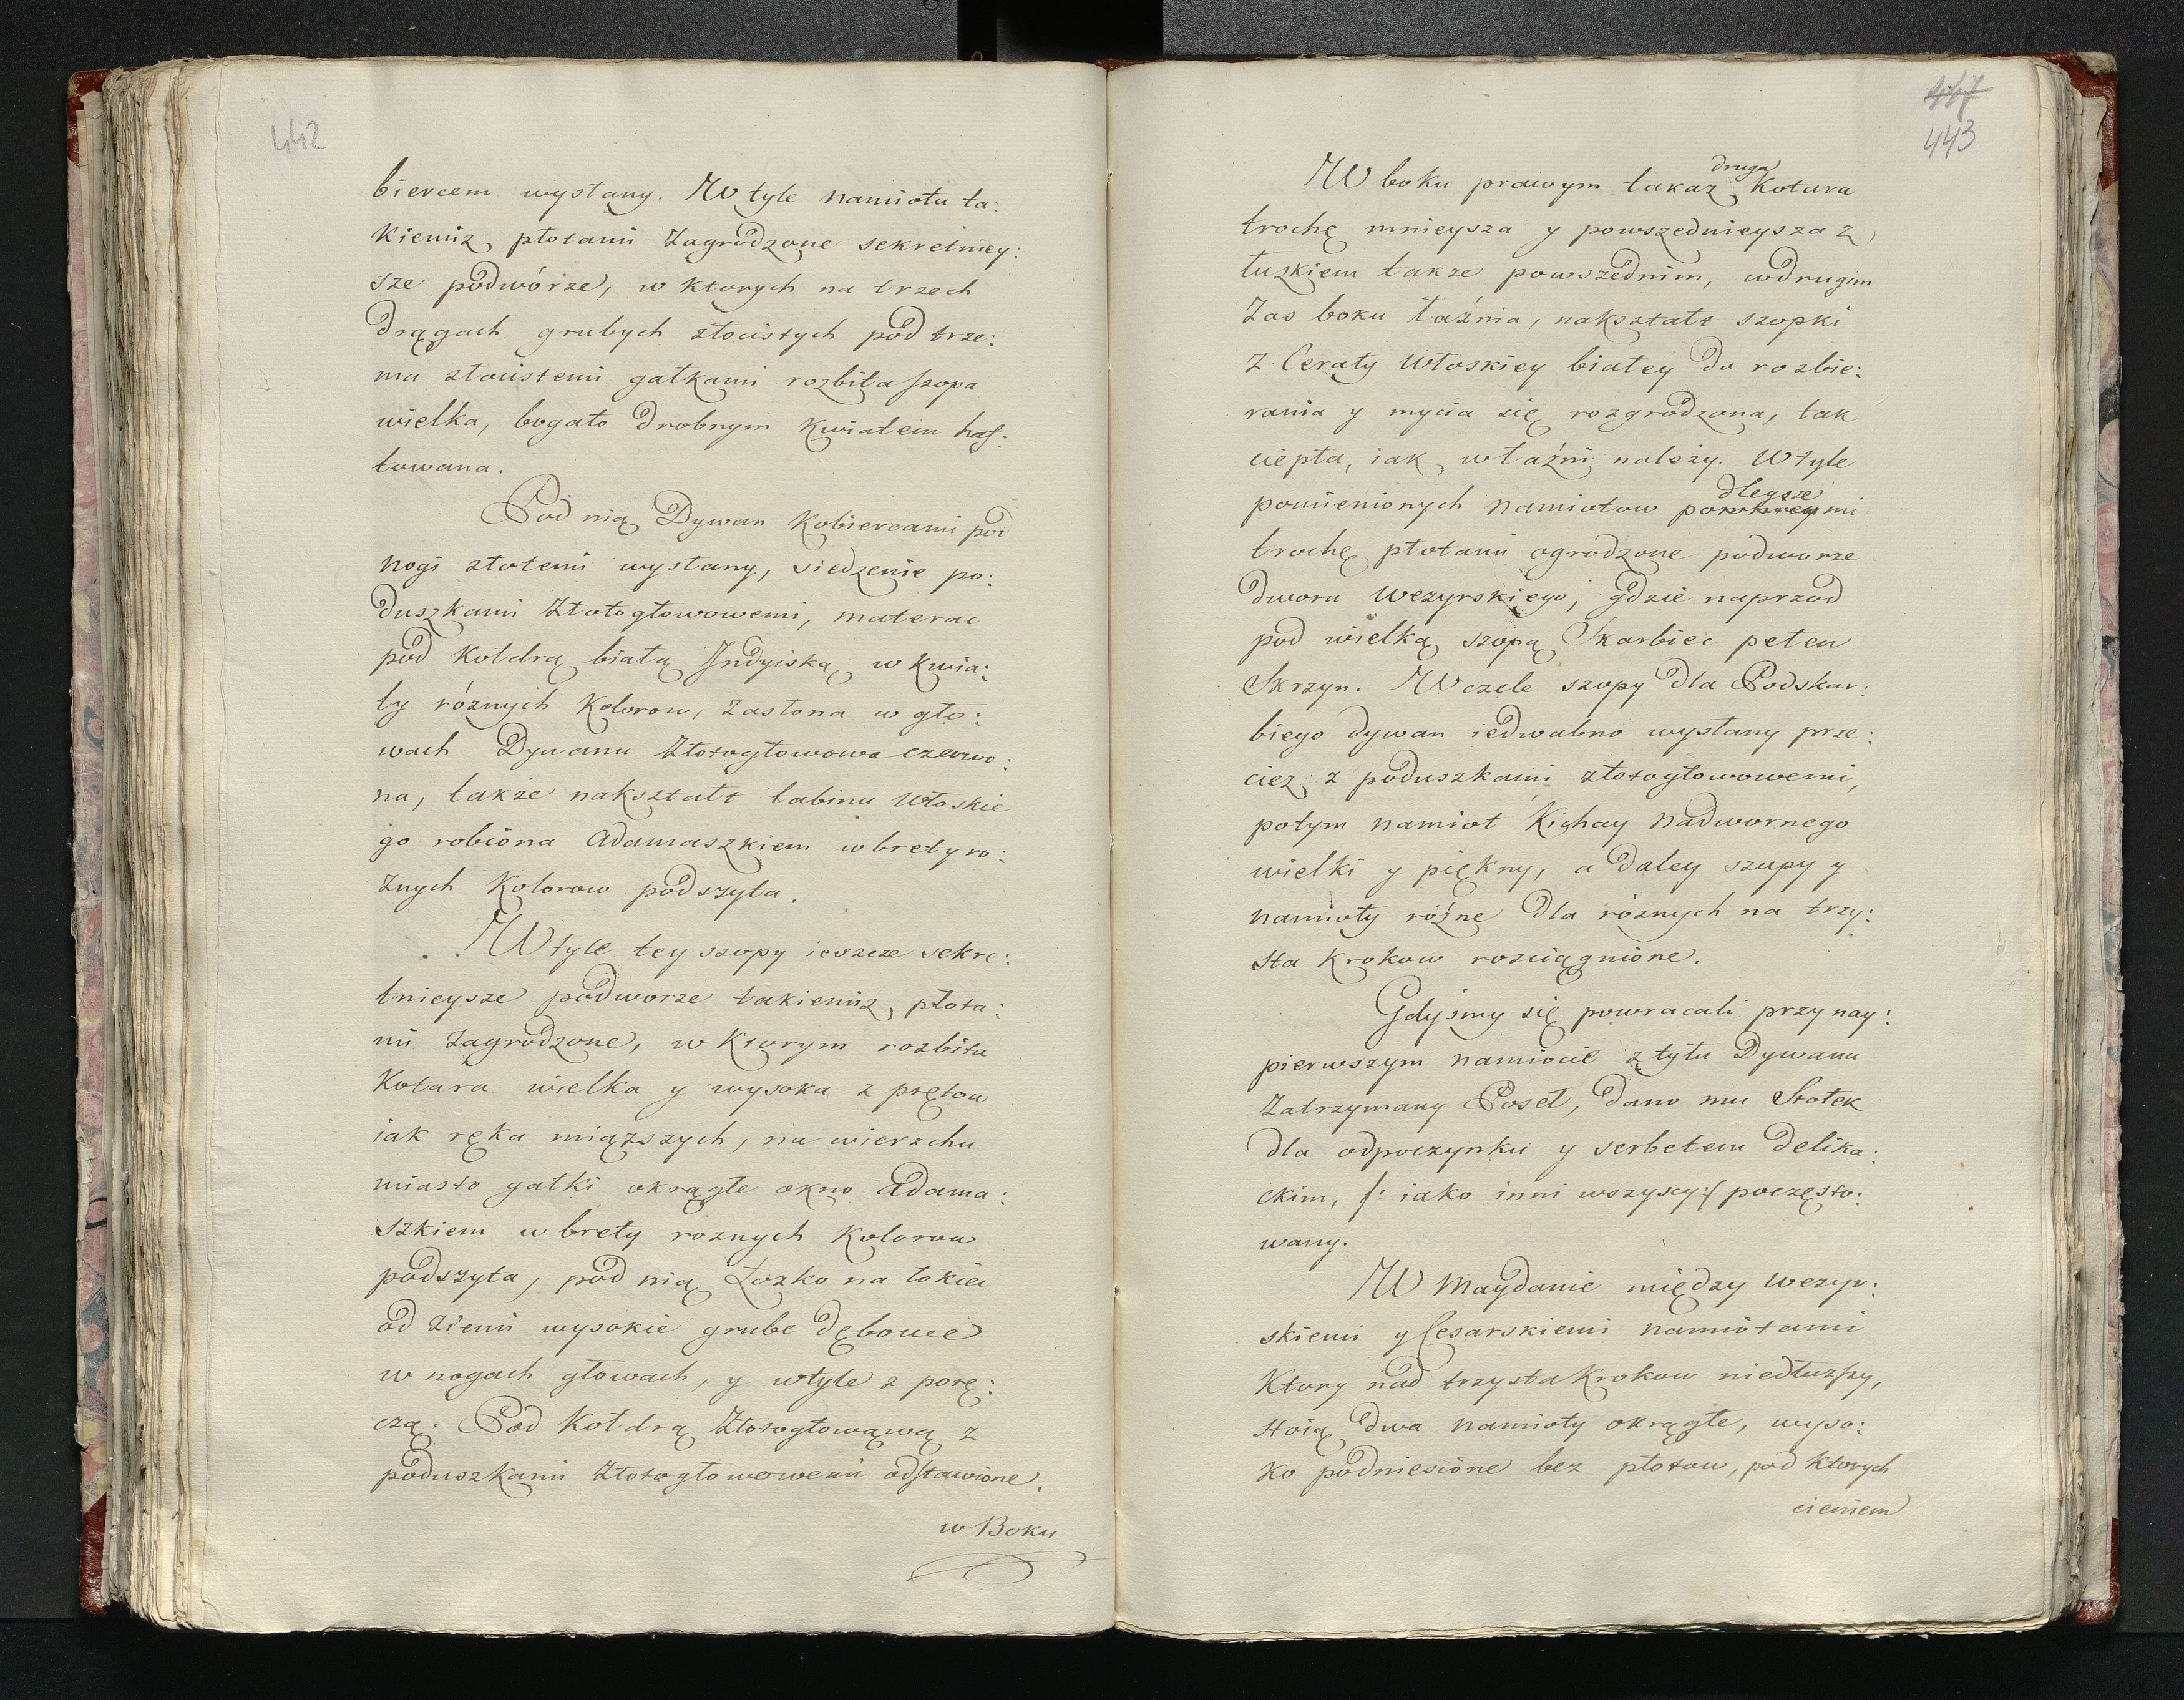 442
biercem wysłany. W tyle namiotu ta:
kiemiz płotami zagrodzone sekretniey:
sze podwórze, w ktorych na trzech
drągach grubych złocistych pod trze:
ma złocistemi gałkami rozbita szopa
wielka, bogato drobnym kwiatem haf:
towana.
Pod nią Dywan kobiercami pod
nogi złotemi wysłany, siedzenie po:
duszkami złotogłowowemi, materac
pod kołdrą białą Jndyiską w kwia:
ty róznych kolorow, zasłona w gło:
wach Dywanu złotogłowowa czerwo:
na, także nakształt tabinu włoskie
go robiona adamaszkiem w brety ro:
znych kolorow podszyta.
W tyle tey szopy ieszcze sekre:
tnieysze podworze takiemiz płota:
mi zagrodzone, w ktorym rozbita
kotara wielka y wysoka z prętow
iak ręka miązszych, na wierzchu
miasto gałki okrągłe okno adama:
szkiem w brety roznych kolorow
podszyta, pod nią Łozko na łokieć
od ziemi wysokie grube dębowe
w nogach głowach, y w tyle z porę:
czą. Pod kołdrą złotogłowową z
poduszkami złotogłowowemi odstawione.
w Boku
447
443
W boku prawym takaz druga kotara
trochę mnieysza y powszednieysza z
łuzkiem takze powszednim, w drugim
zas boku łaźnia, nakształt szopki
z Ceraty włoskiey białey do rozbie:
rania y mycia się rozgrodzona, tak
ciepła, iak w łaźni należy. W tyle
pomienionych namiotow podleysze mi
trochę płotami ogrodzone podworze
dworu wezyrskiego, gdzie naprzod
pod wielką szopą Skarbiec pełen
Skrzyn. W czele szopy dla Podskar:
biego dywan iedwabno wysłany prze:
ciez z poduszkami złotogłowowemi,
potym namiot Kiehay nadwornego
wielki y piękny, a daley szopy y
namioty różne dla róznych na trzy:
sta krokow rozciągnione.
Gdyśmy się powracali przy nay:
pierwszym namiocie z tyłu Dywanu
zatrzymany Poseł, dano mu stołek
dla odpoczynku y serbetem delika:
ckim, /: iako inni wszyscy :/ poczęsto:
wany.
W Maydanie między wezyr:
skiemi y Cesarskiemi namiotami
ktory nad trzysta krokow niedłuzszy,
stoią dwa namioty okrągłe, wyso:
ko podniesione bez płotow, pod ktorych
cieniem